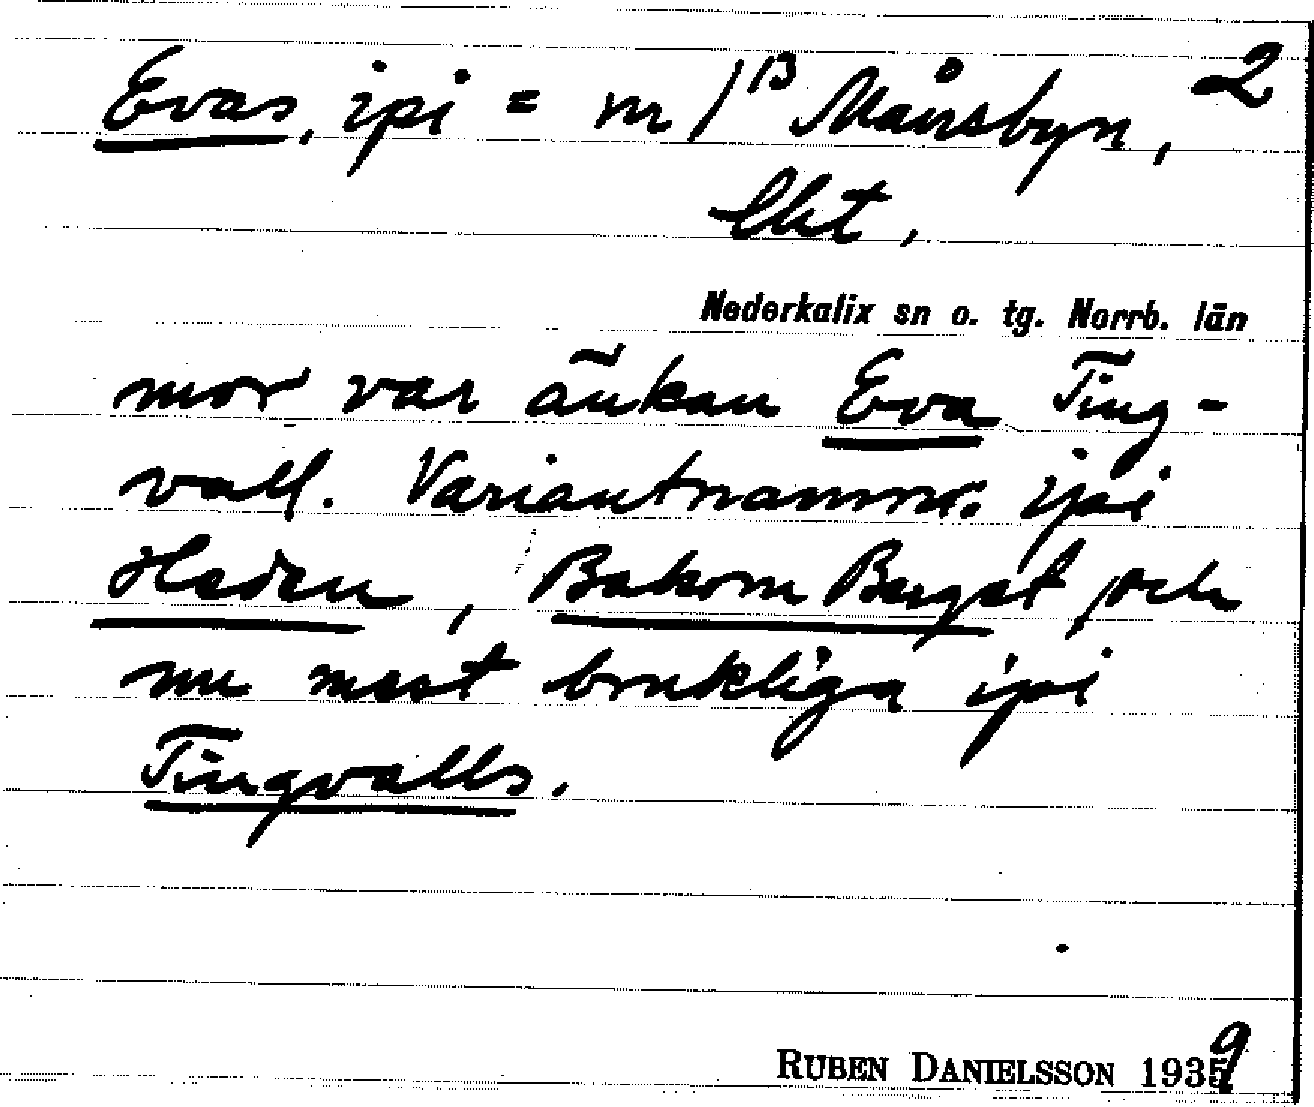 Evas, ipi = nr 1¹³ Månsbyn, 2
Nederkalix sn o. tg. Norrb. län
mor var änkan Eva Ting-
vall. Variantnamn. ipi
Heden, Bakom Berget och
nu mest brukliga ipi
Tingvalls.
RUBEN DANIELSSON 1939